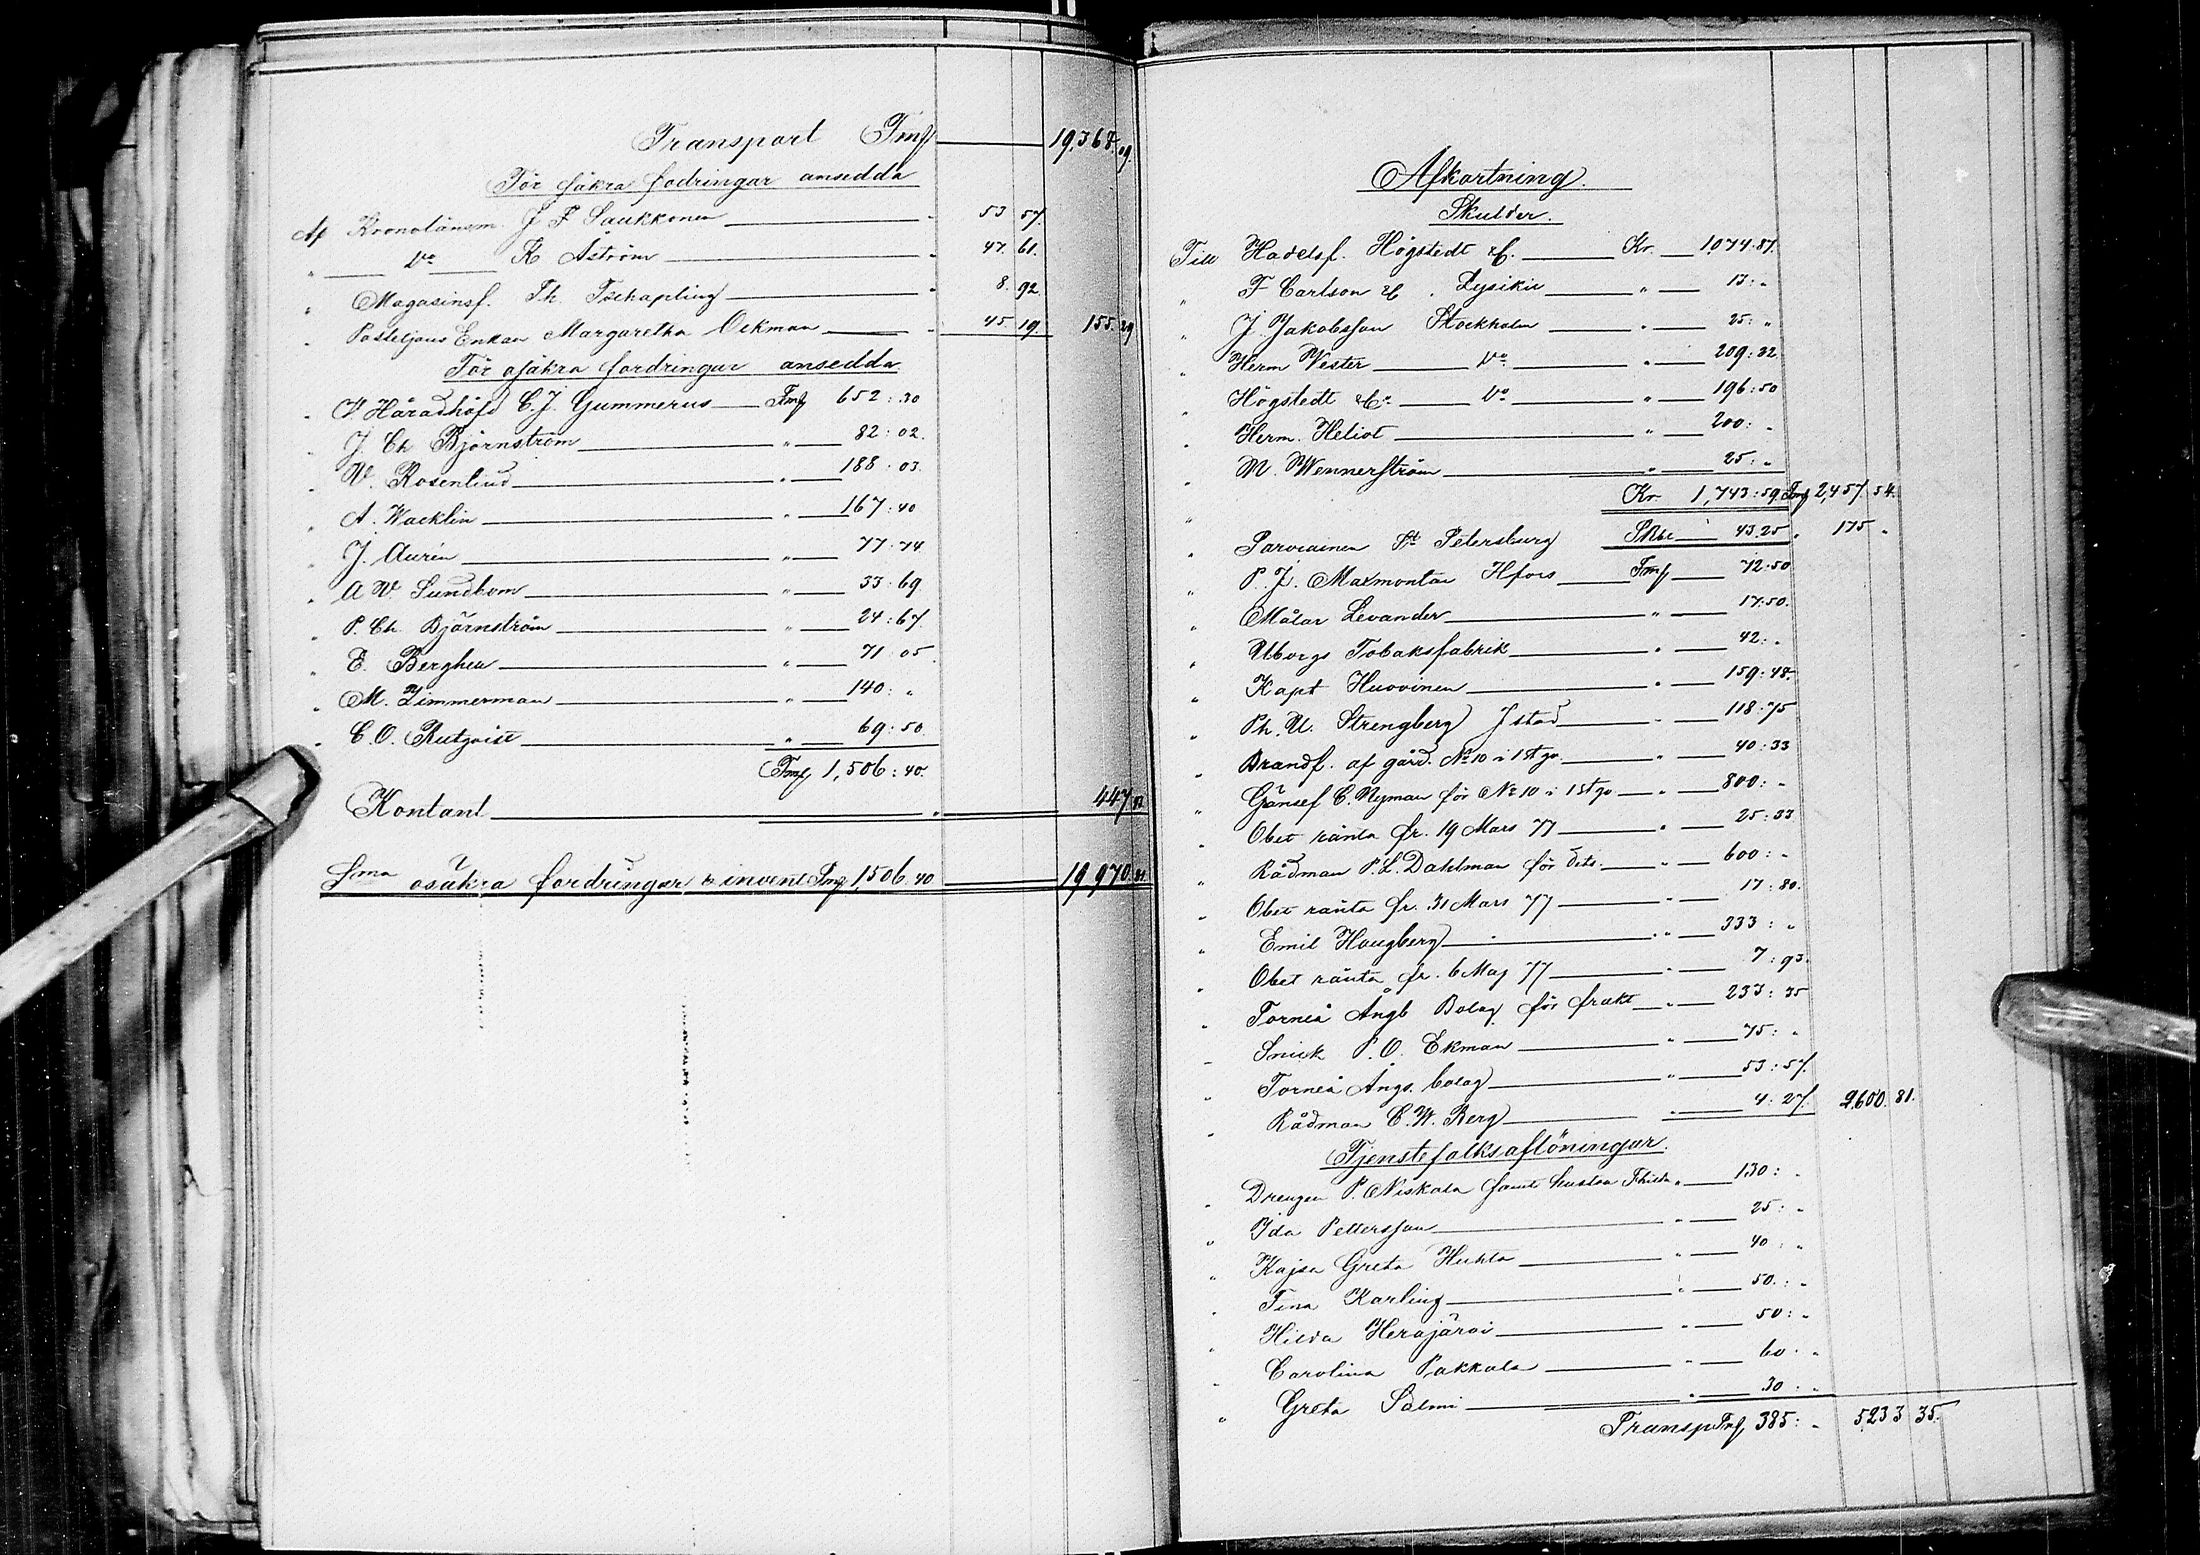 Transport Fmk 19,368. 09.
För säkra fodringar ansedda
Af Kronolänsm. J F Saukkonen 53 57.
" Do K Åström " 47. 61.
" Magasinsf. Th. Tschapling " 8. 92.
" Posteljons Enkan Margaretha Oekman " 45. 19. 155. 29
För osäkra fordringar ansedda
" V Häradshöfd C. J. Gummerus Fmk 652: 30
" J. Ch Björnström " 82: 02.
" W. Rosenlind " 188: 03.
" A. Wacklin " 167: 40
" J. Aurén " 77: 74
" A W Sundbom " 33: 69.
" P. Ch Björnström " 24: 67.
" E. Berghem " 71: 05.
" M. Zimmerman " 140: "
" C. O. Rutqvist " 69: 50.
Fmk 1,506: 40.
Kontant " 447
Sma osäkra fordringar & invent Fmk 1506. 40 19,970.
Afkortning.
Skulder.
Till Hadelsf. Högstedt &C. Kr. 1,074. 87.
" F Carlson &C. Lysikil " 13: "
" J. Jakobsson Stockholm " 25: "
" Herm Vester Do " 209: 32.
" Högstedt &Co Do " 196: 50
" Herm. Heliot " 200: "
" M. Wennerström " 25: "
Kr 1,743: 59. Fmk 2,457. 54.
" Parviainen St Petersburg SRbl 43.25 " 175 "
" P. J. Maxmontan Hfors Fmk 72. 50
" Målar Levander " 17. 50.
" Uborgs Tobaksfabrik " 42: "
" Kapt Huovinen " 159: 48.
" Ph. U. Strengberg Jstad " 118: 75
" Brandf. af gård. No 10 i 1stqo " 40: 33
" Gänsef C. Nyman för No 10 i 1stqo " 800: "
" Obet ränta fr. 19 Mars 77 " 25: 33
" Rådman P. L. Dahlman för dito " 600: "
" Obet ränta fr. 31 Mars 77 " 17: 80.
" Emil Haugberg " 333: "
" Obet ränta fr. 6 Maj 77 " 7: 93.
" Torneå Ångb Bolag för frakt " 233: 35
" Snick P. O. Ekman " 75: "
" Torneå Ångs. bolag " 53: 57.
" Rådman C. W. Berg " 4: 27. 2,600. 81.
Tjenstefolksaflöningar.
" Drengen P. Niskala samt hustru " 130: "
" Ida Pettersson " 25: "
" Kajsa Greta Huhta " 40: "
" Tina Karling " 50: "
" Hilda Herajärvi " 50: "
" Carolina Pakkala " 60 "
" Greta Salmi " 30: "
Transp Fmk 385: " 5,233 35.